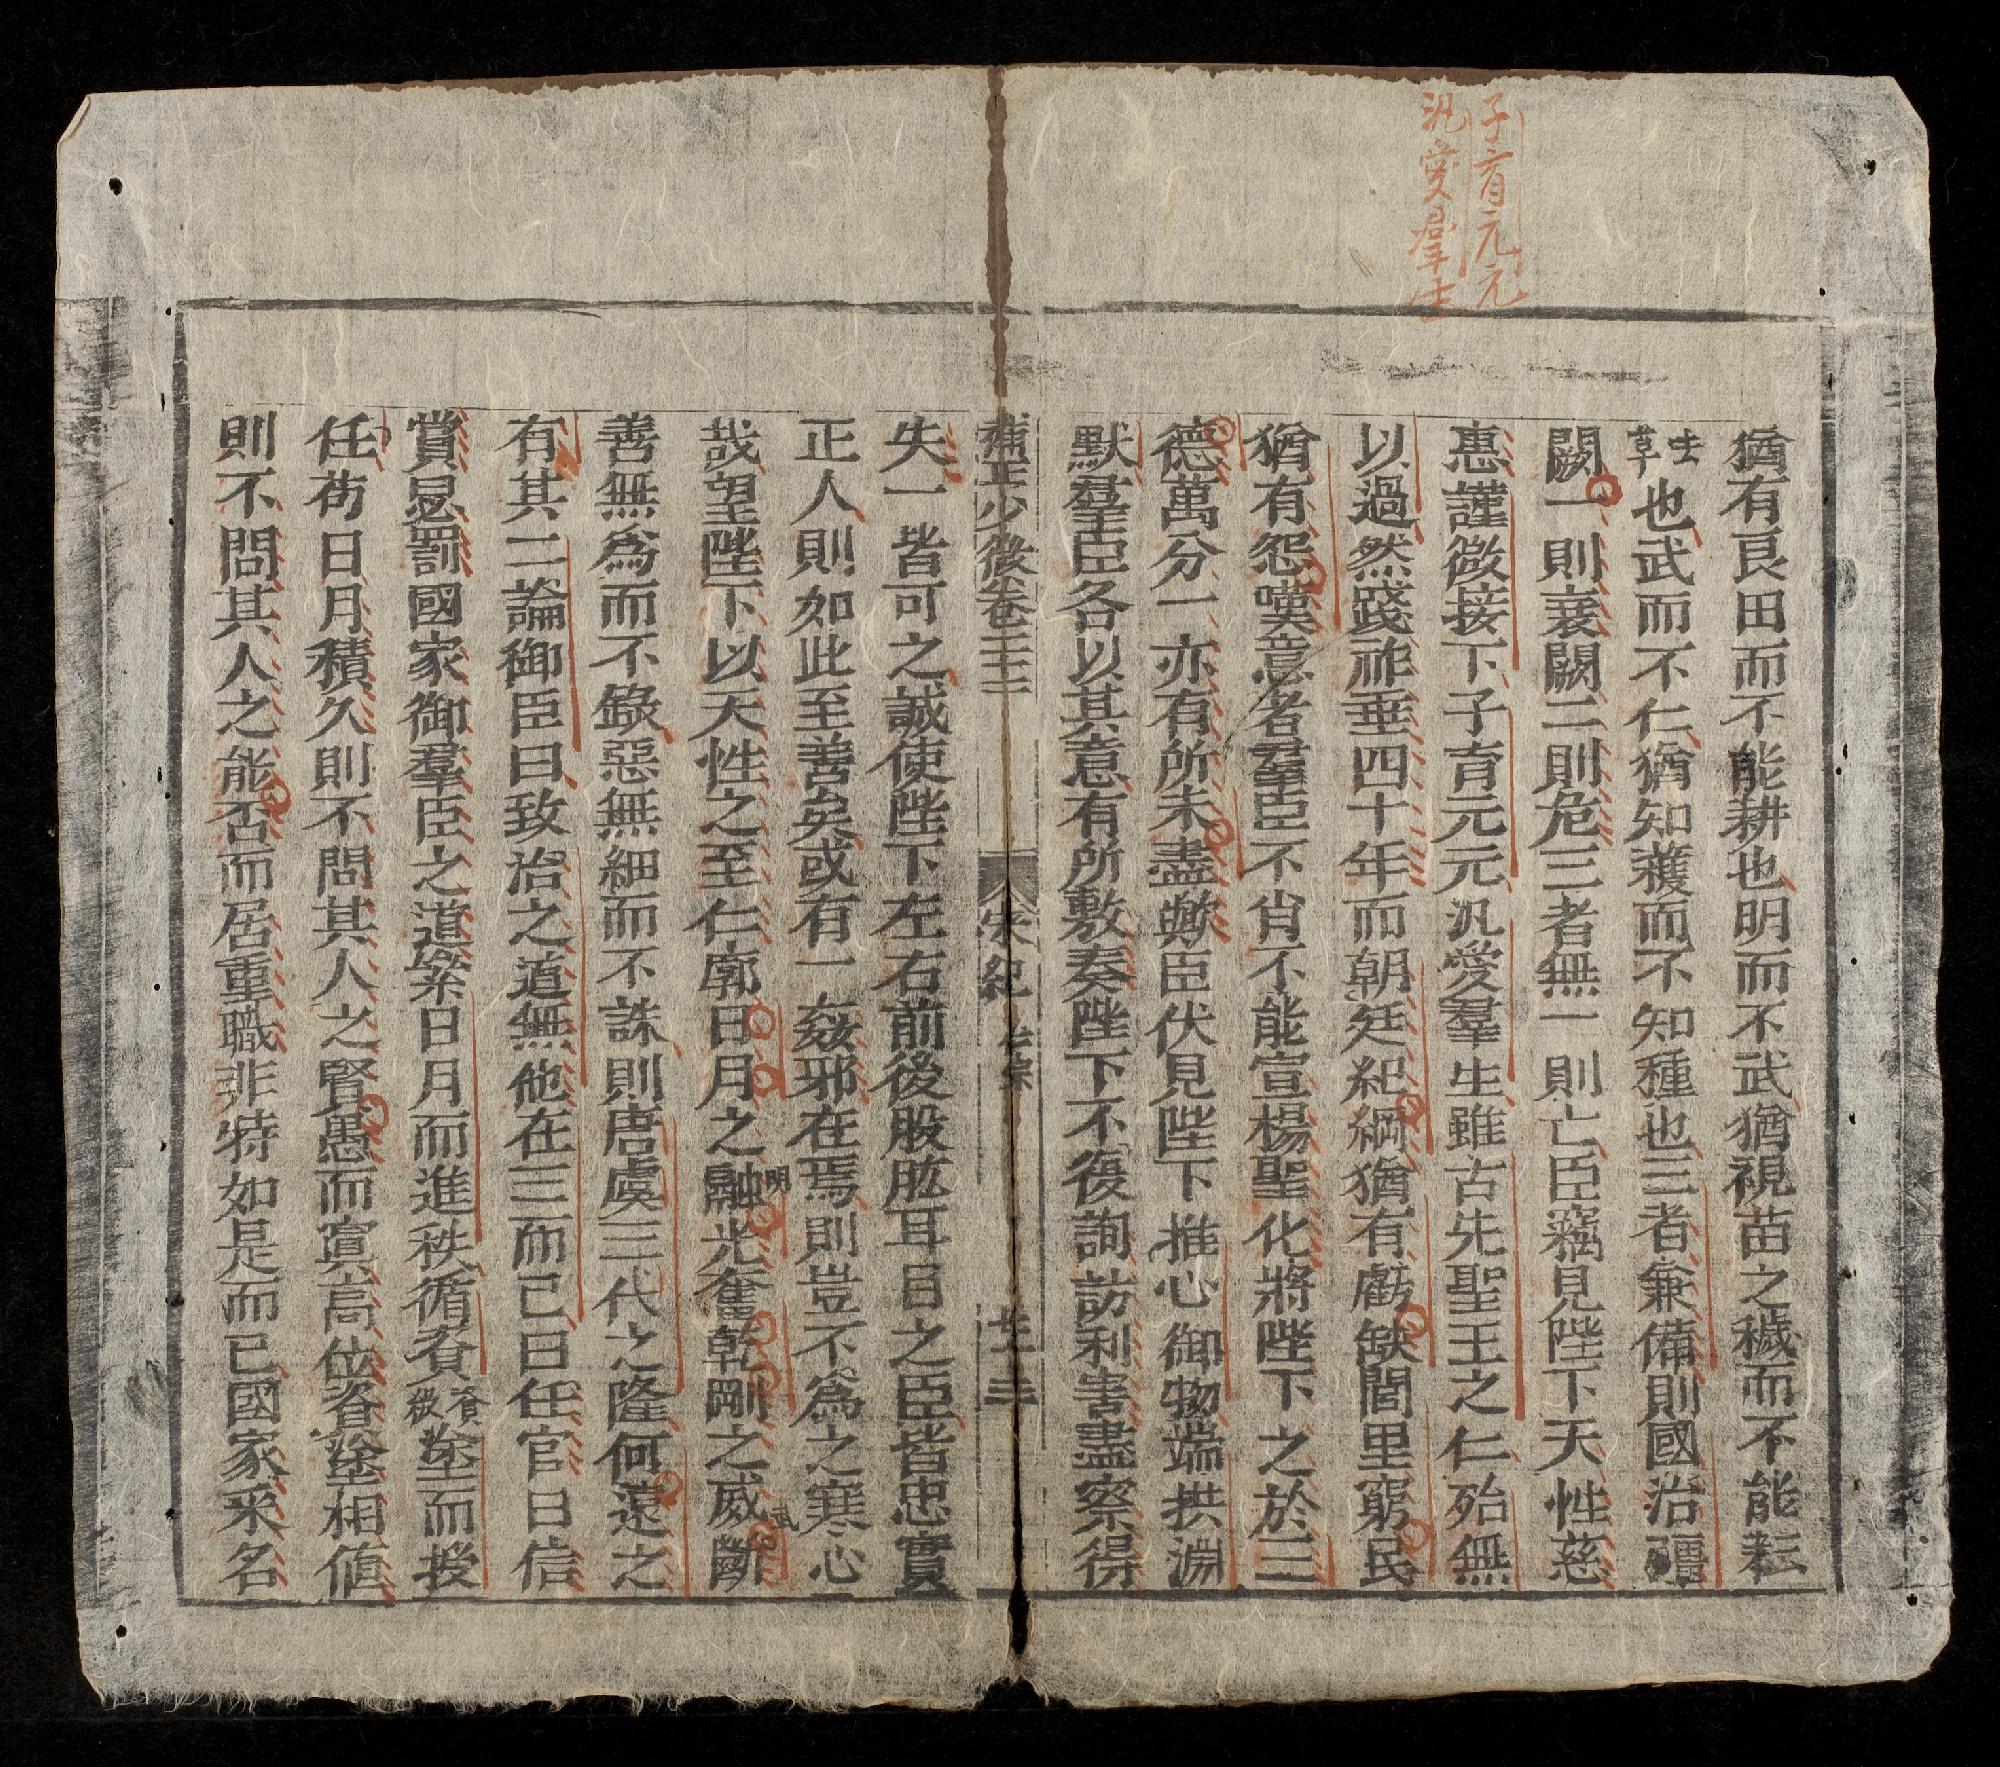 子育元元
汎愛羣生
猶有良田而不能耕也明而不武猶視苗之穢而不能耘
去草也武而不仁猶知穫而不知種也三者兼備則國治彊
闕一則衰闕二則危三者無一則亡臣竊見陛下天性慈
惠謹微接下子育元元汎愛羣生雖古先聖王之仁殆無
以過然踐祚垂四十年而朝廷紀綱猶有虧缺閭里窮民
猶有怨嘆意者羣臣不肖不能宣揚聖化將陛下之於三
德萬分一亦有所未盡歟臣伏見陛下推心御物端拱淵
默羣臣各以其意有所敷奏陛下不復詢訪利害盡察得
補正少微卷二十三 宋紀 仁宗 廿三
失一皆可之誠使陛下左右前後股肱耳目之臣皆忠實
正人則如此至善矣或有一姦邪在焉則豈不爲之寒心
哉望陛下以天性之至仁廓日月之融明光奮乾剛之威武斷
善無爲而不錄惡無細而不誅則唐虞三代之隆何遠之
有其二論御臣曰致治之道無他在三而已曰任官曰信
賞曰必罰國家御羣臣之道累日月而進秩循資資級塗而授
任苟日月積久則不問其人之賢愚而寘高位資塗相値
則不問其人之能否而居重職非特如是而已國家采名